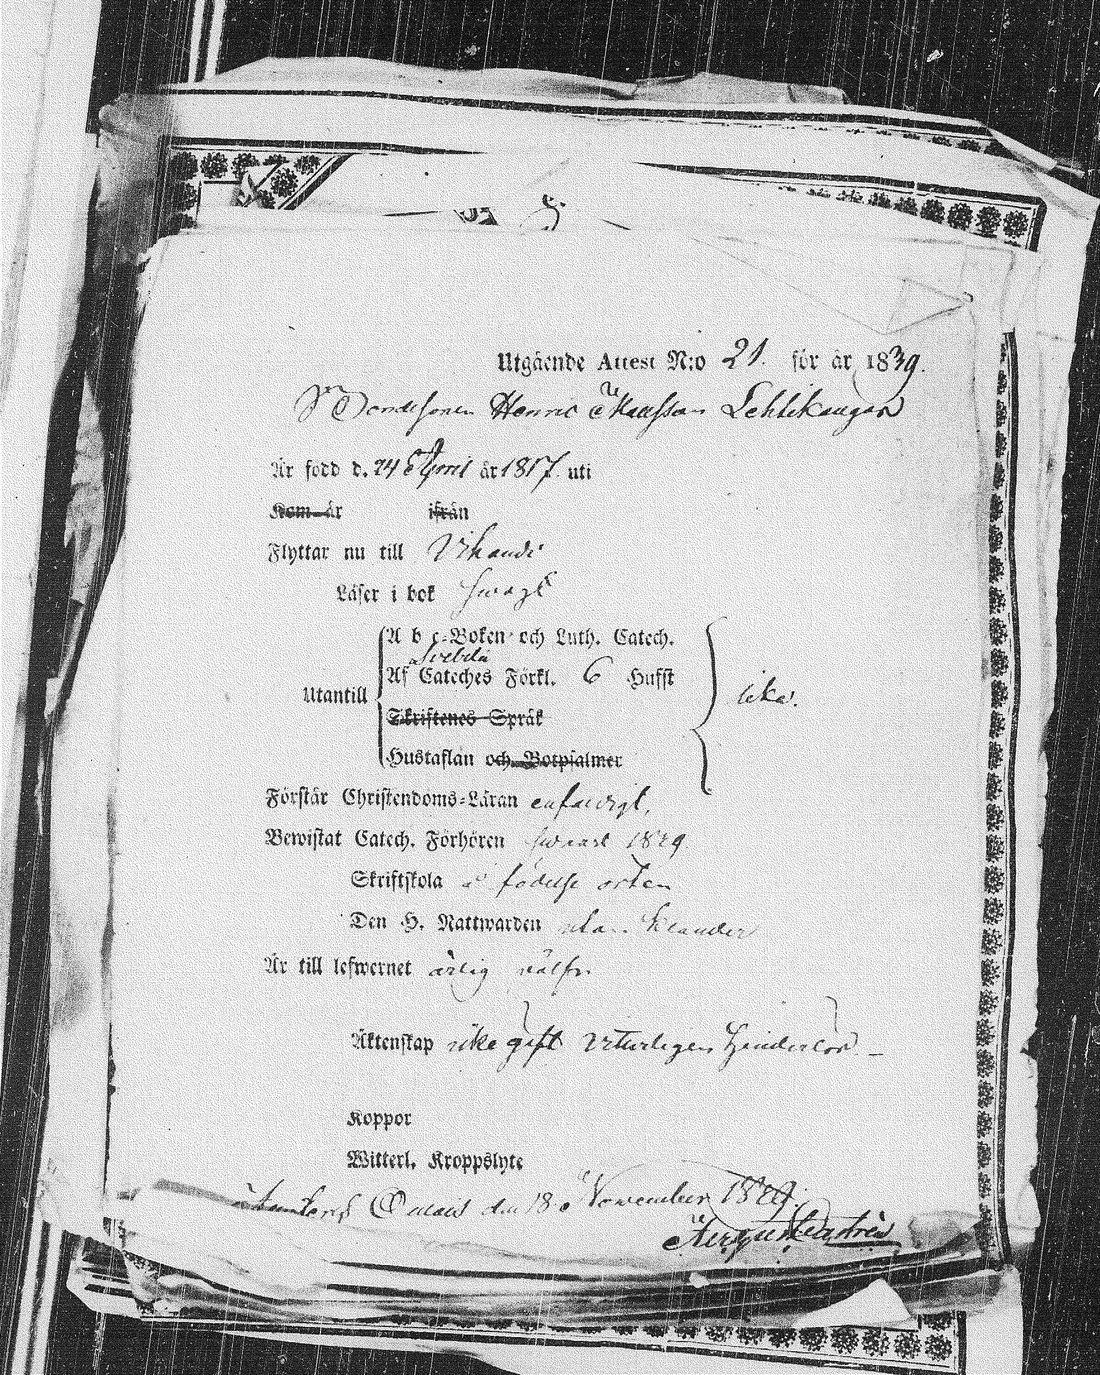 Utgående Attest N:o 21. för år 1839.
Bondesonen Henric Lehtikangas
Är född d. 24 April år 1817 uti
Kom år ifrån
Flyttar nu till
Läser i bok swagt
A b c-Boken och Luth. Catech.
Svebelii
Utantill Af Cateches Förkl. 6 Hufst lika.
Skriftenes Språk
Hustaflan och Botpsalmer
Förstår Christendoms-Läran enfaldigt,
Bewistat Catech. Förhören 1839
Skriftskola å födelse orten
Den H. Nattwarden utan klander
Är till lefwernet ärlig
Äktenskap icke gift Veterligen hinderlös. –
Koppor
Witterl. Kroppslyte
den 18 November 1839.